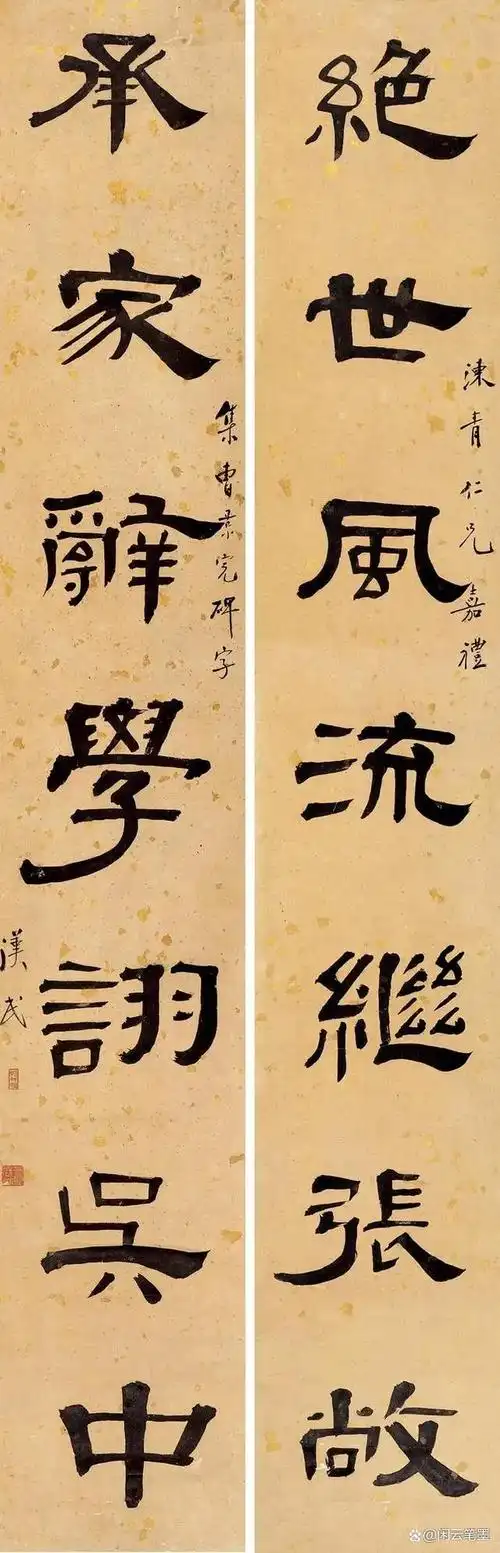 絕世風流繼張敞
青仁兄嘉禮
承家辭學詡吳中
集曹景完碑字
漢民
闲云笔墨